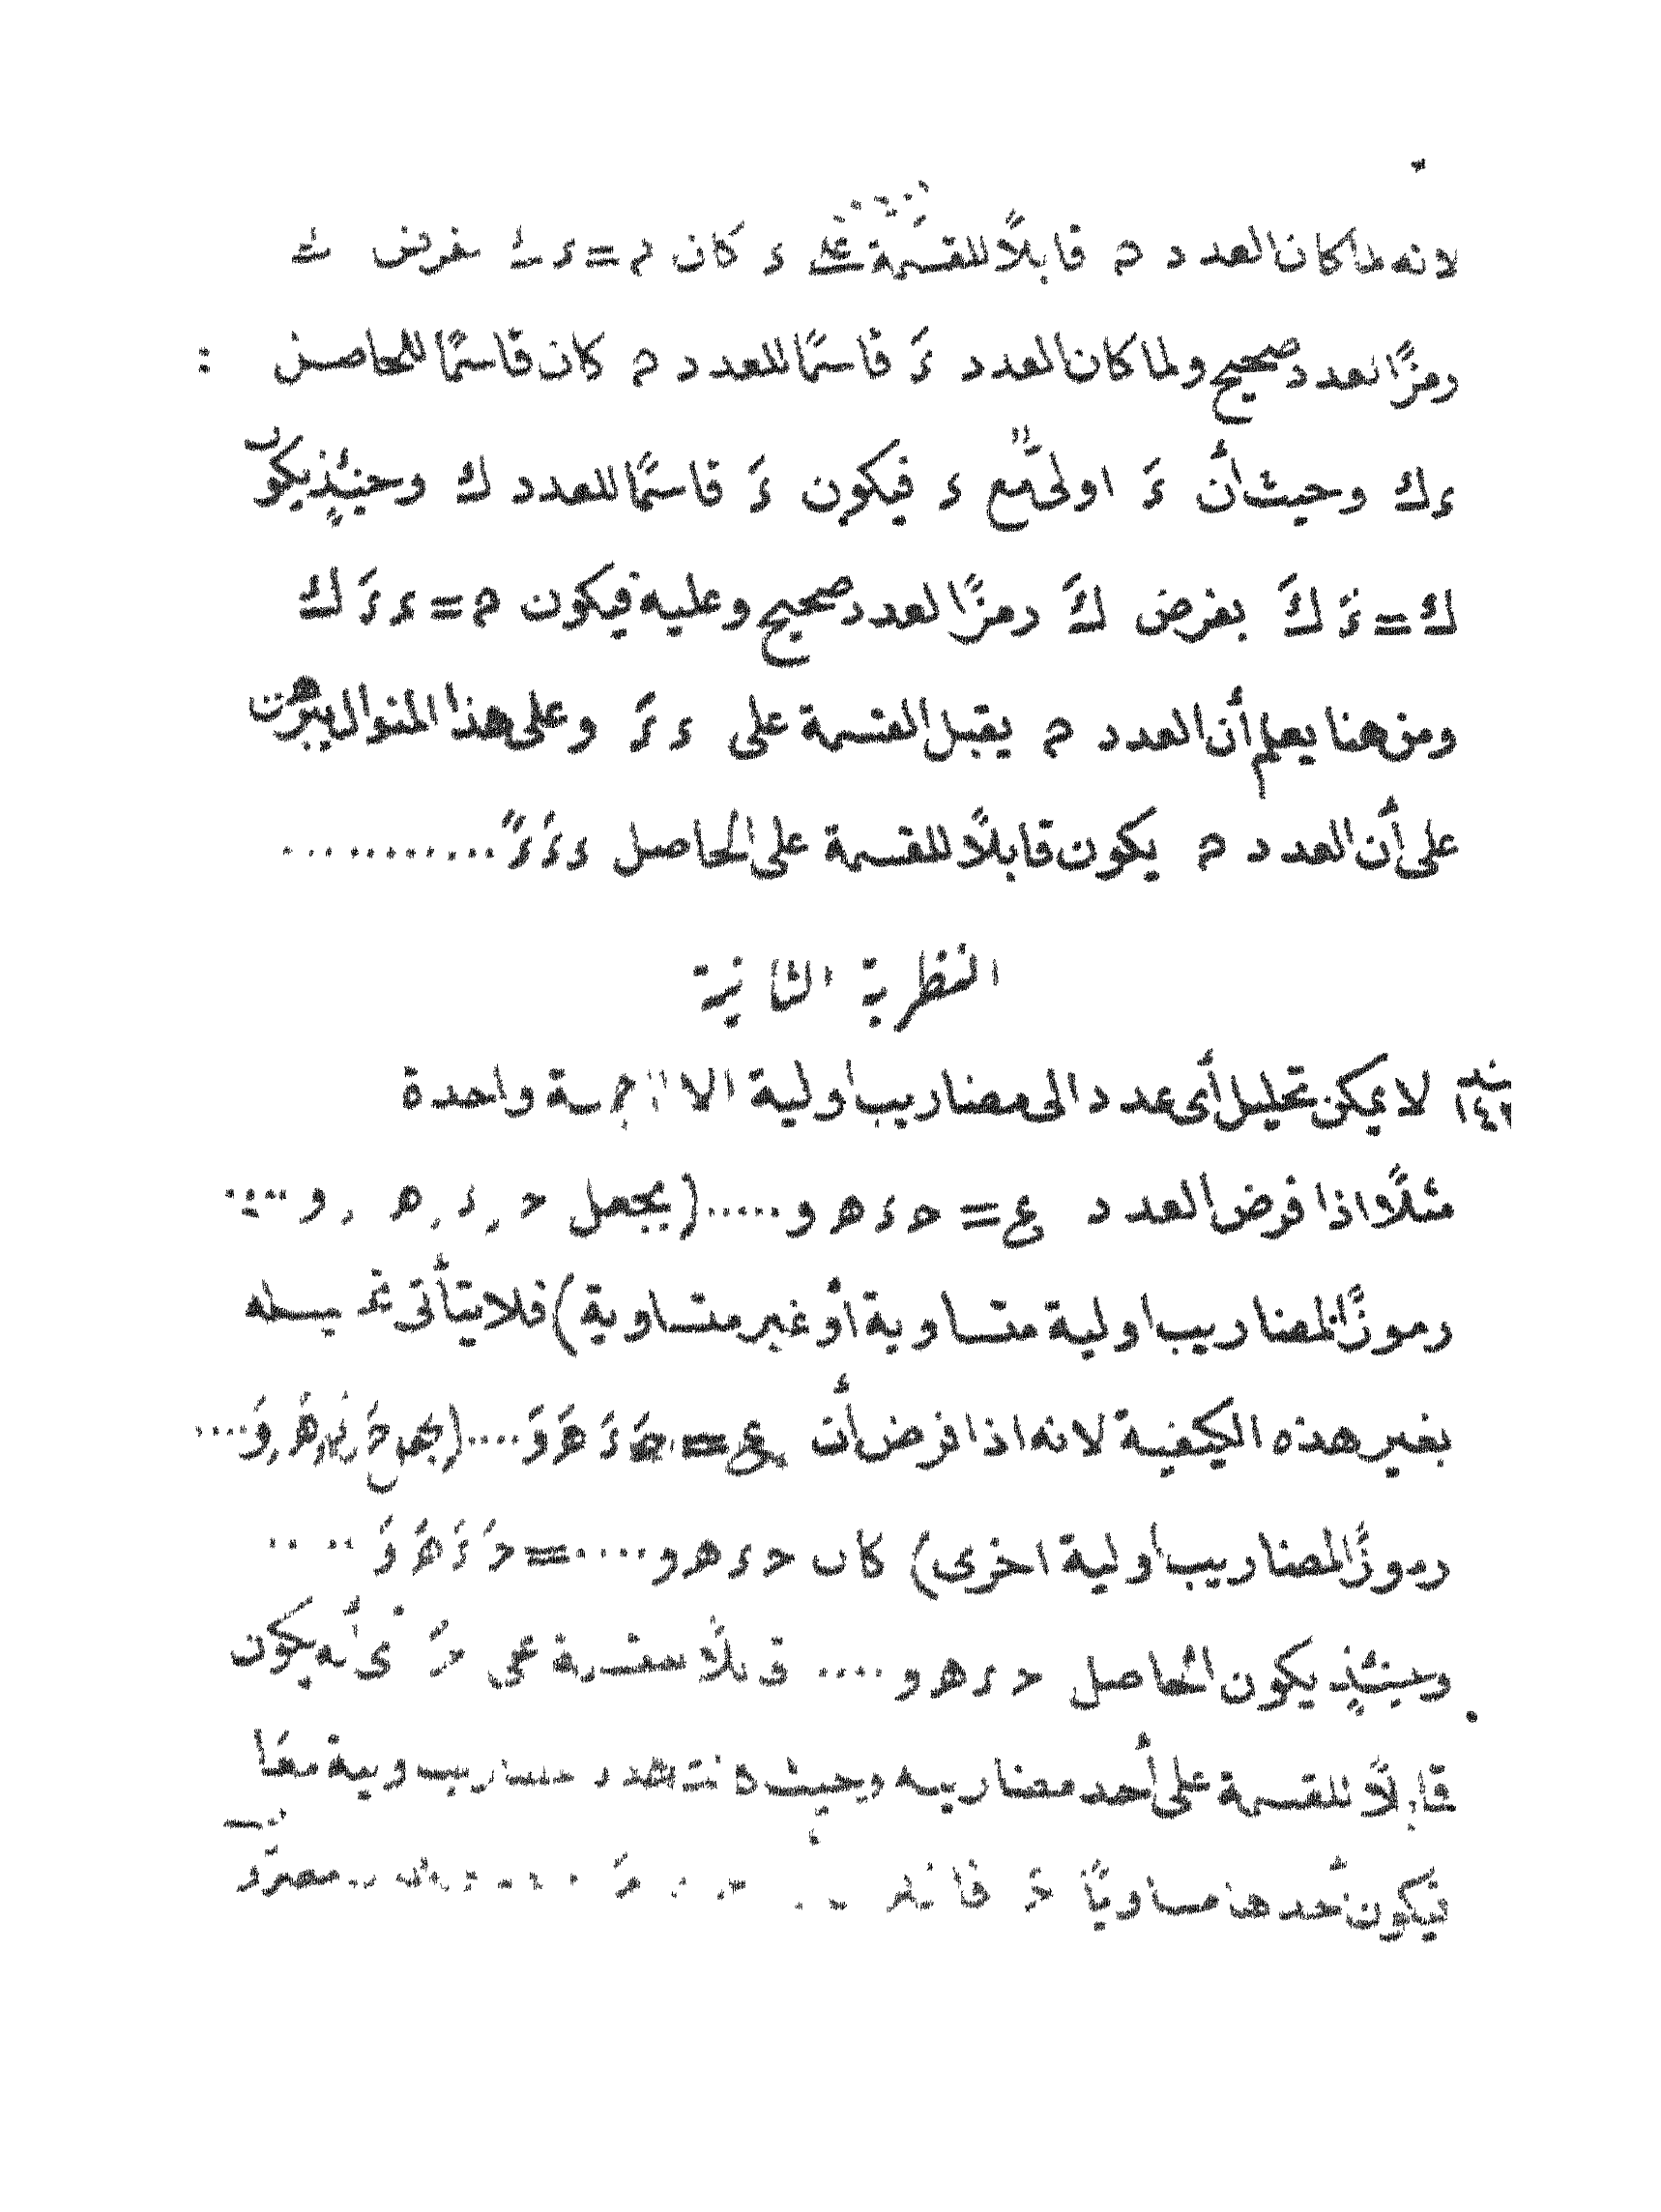 لانه لما كان العدد م قابلاً للقسمة على ء كان م = ء ك بفرض ك
رمزًا لعدد صحيح ولما كان العدد ءَ قاسمًا للعدد م كان قاسمًا للحاصل
ء ك وحيث أن ءَ اولىّ مع ء فيكون ءَ قاسمًا للعدد ك وحينئذٍ يكون
ك = ءَ كَ بفرض كَ رمزًا لعدد صحيح وعليه فيكون م = ء ءَ كَ
ومن هنا يعلم أن العدد م يقبل القسمة على ء ءَ وعلى هذا المنوال يبرهن
على أن العدد م يكون قابلاً للقسمة على الحاصل ء ءَ ءً ...........
النظرية الثانية
لا يمكن تحليل أى عدد الى مضاريب اولية الا واحدة
مثلًا اذا فرض العدد ع = حـ ء هـ و .....(بجعل حـ , ء , هـ , و ....
رموزًا لمضاريب اولية متساوية أو غير متساوية) فلا يتأتى
بغير هذه الكيفية لانه اذا فرض أن ع = حـَ ءَ هـَ وَ ....(بجعل حـَ , ءَ , هـَ , وَ ....
رموزًا لمضاريب اولية اخرى) كان حـ ء هـ و .... = حـَ ءَ هـَ وَ ....
وحينئذٍ يكون الحاصل حـ ء هـ و .... قابلًا للقسمة على حـَ أى أنه يكون
قابلًا للقسمة على أحد مضاريبه وحيث كانت هذه المضاريب اولية معًا
فيكون أحدها مساويًا حـَ